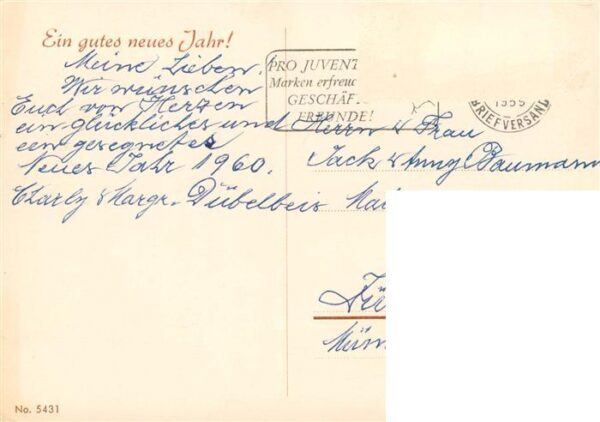 Ein gutes neues Jahr!
Meine Lieben,
Wir wünschen
Euch von Herzen
ein glückliches und
ein gesegnetes
Neues Jahr 1960.
Charly & Margr. Dübelbeis
PRO JUVENT
Marken erfreuc
GESCHÄF
FREUNDE!
1959
BRIEFVERSAND
Herrn & Frau
Jack & Anny Baumann
No. 5431